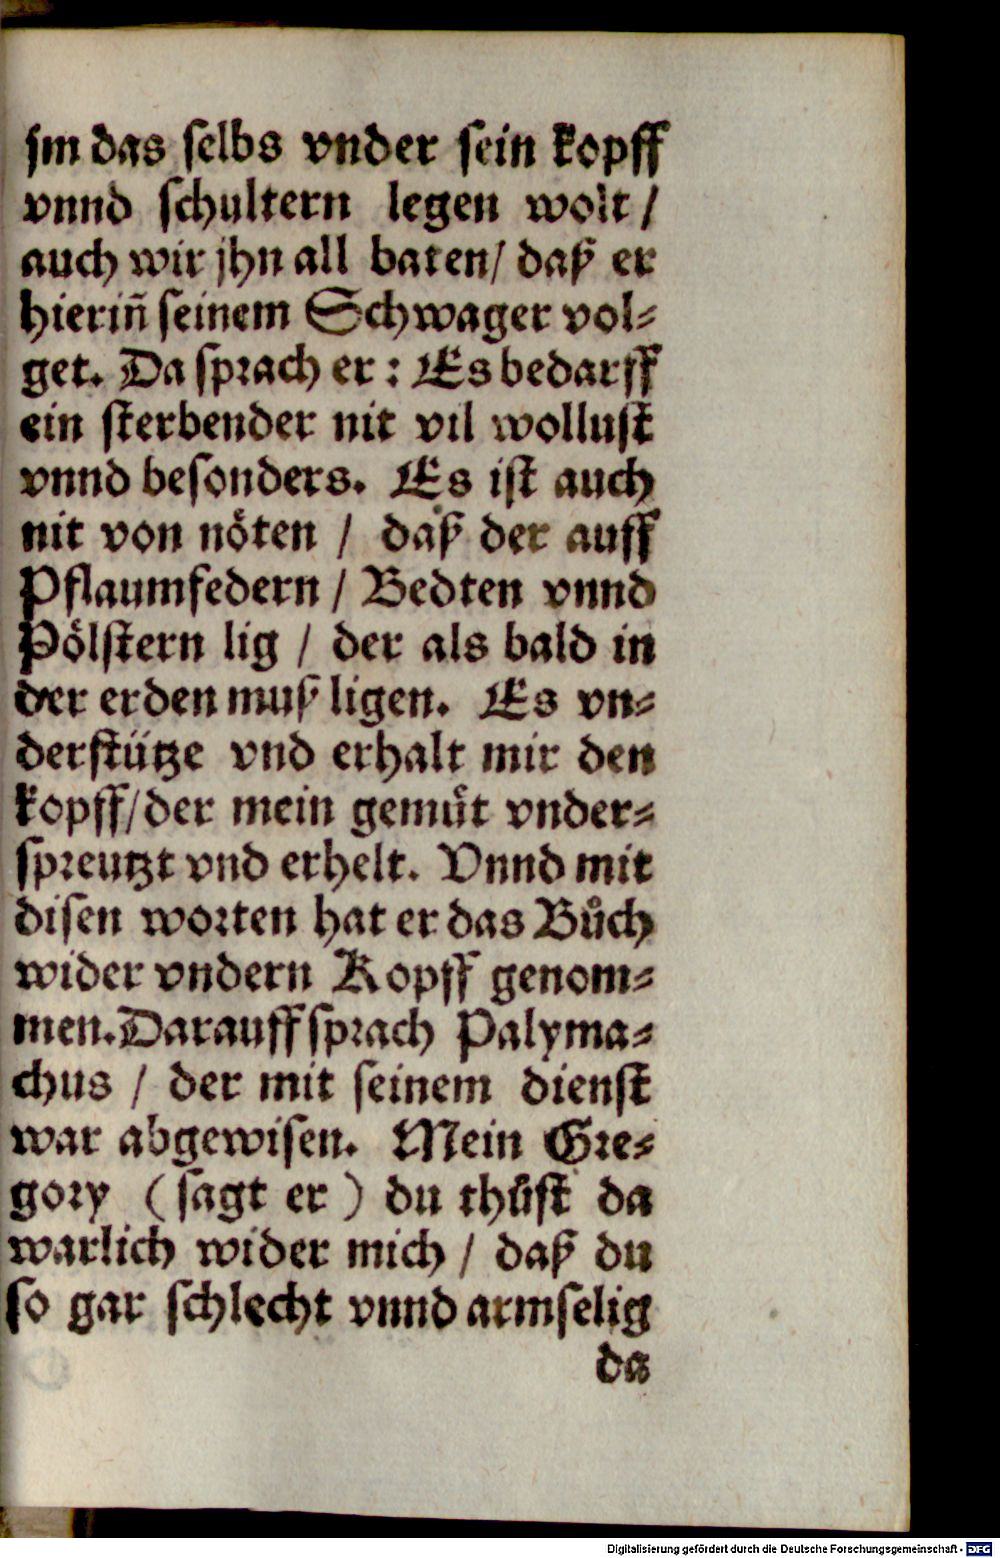 jm das selbs vnder sein kopff
vnnd schultern legen wolt /
auch wir jhn all baten / daß er
hierin̄ seinem Schwager vol⸗
get. Da sprach er : Es bedarff
ein sterbender nit vil wollust
vnnd besonders. Es ist auch
nit von nöten / daß der auff
Pflaumfedern / Bedten vnnd
Pölstern lig / der als bald in
der erden muß ligen. Es vn⸗
derstütze vnd erhalt mir den
kopff / der mein gemuͤt vnder⸗
spreutzt vnd erhelt. Vnnd mit
disen worten hat er das Buͦch
wider vndern Kopff genom⸗
men. Darauff sprach Palyma⸗
chus / der mit seinem dienst
war abgewisen. Mein Gre⸗
gory ( sagt er ) du thuͦst da
warlich wider mich / daß du
so gar schlecht vnnd armselig
da
Digitalisierung gefördert durch die Deutsche Forschungsgemeinschaft - DFG